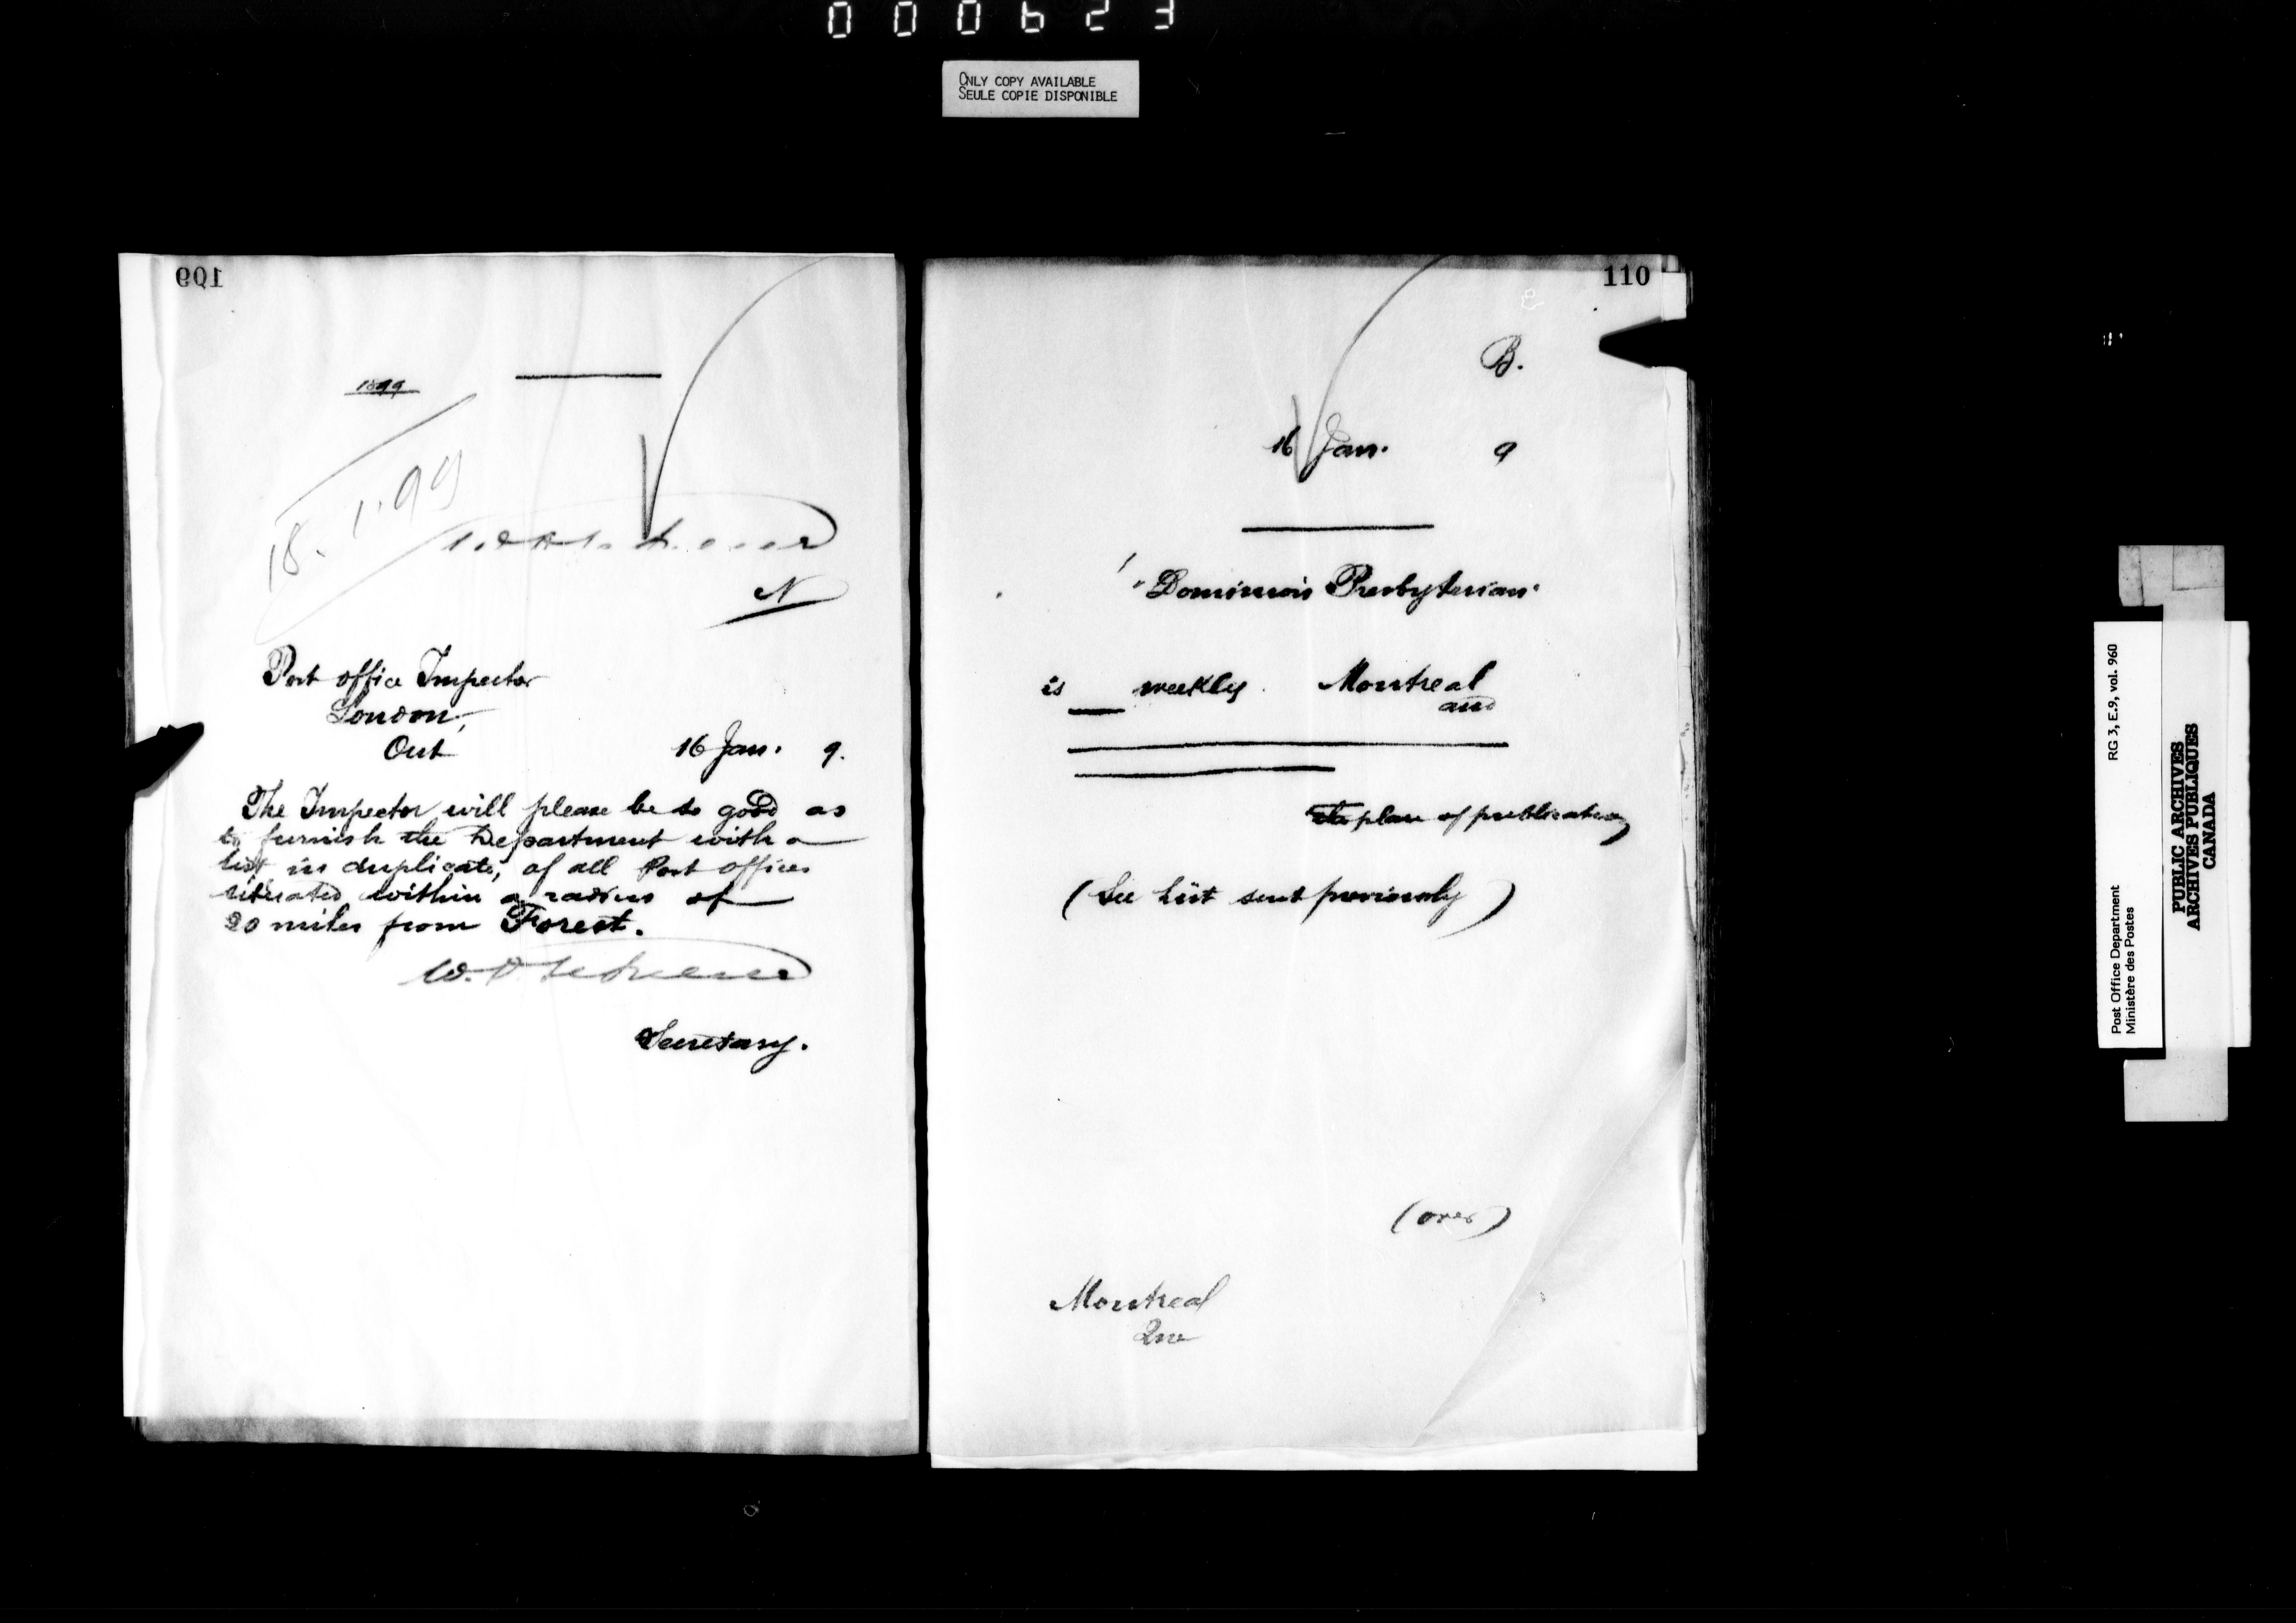 000623
ONLY COPY AVAILABLE
SEULE COPIE DISPONIBLE
109
1899
18.1.99
N
Post office Inspector
London,
Ont
16 Jan. 9.
The Inspector will please be so good as
to furnish the Department with a
list, in duplicate, of all Post offices
situated within a radius of
20 miles from Forest.
Secretary.
110
B.
16 Jan. 9
"Dominion Presbyterian"
is weekly Montreal
and
its place of publication
(See list sent previously)
(over)
Montreal
Que
RG 3, E.9, vol. 960
Post Office Department
Ministère des Postes
PUBLIC ARCHIVES
ARCHIVES PUBLIQUES
CANADA